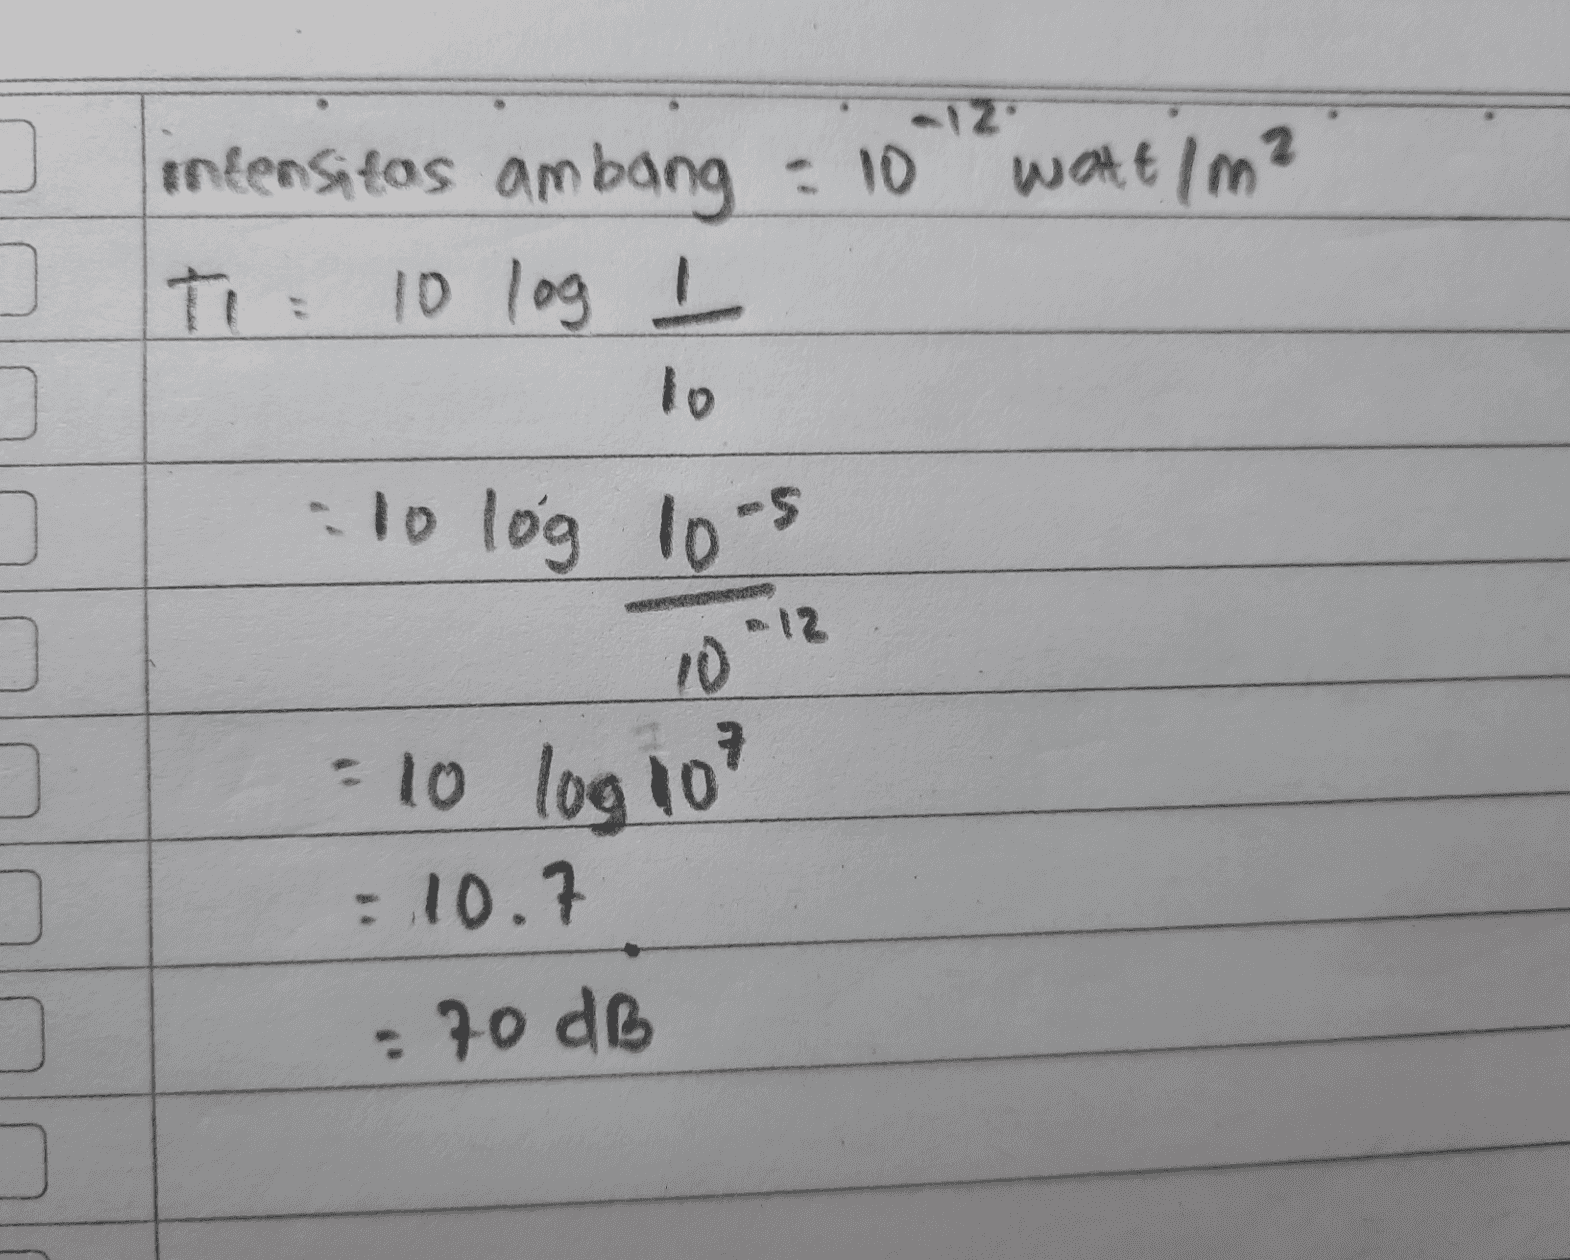 intensitas ambang = 10⁻¹² watt/m²
TI = 10 log 1
10
= 10 log 10⁻⁵
10⁻¹²
= 10 log 10⁷
= 10.7
= 70 dB